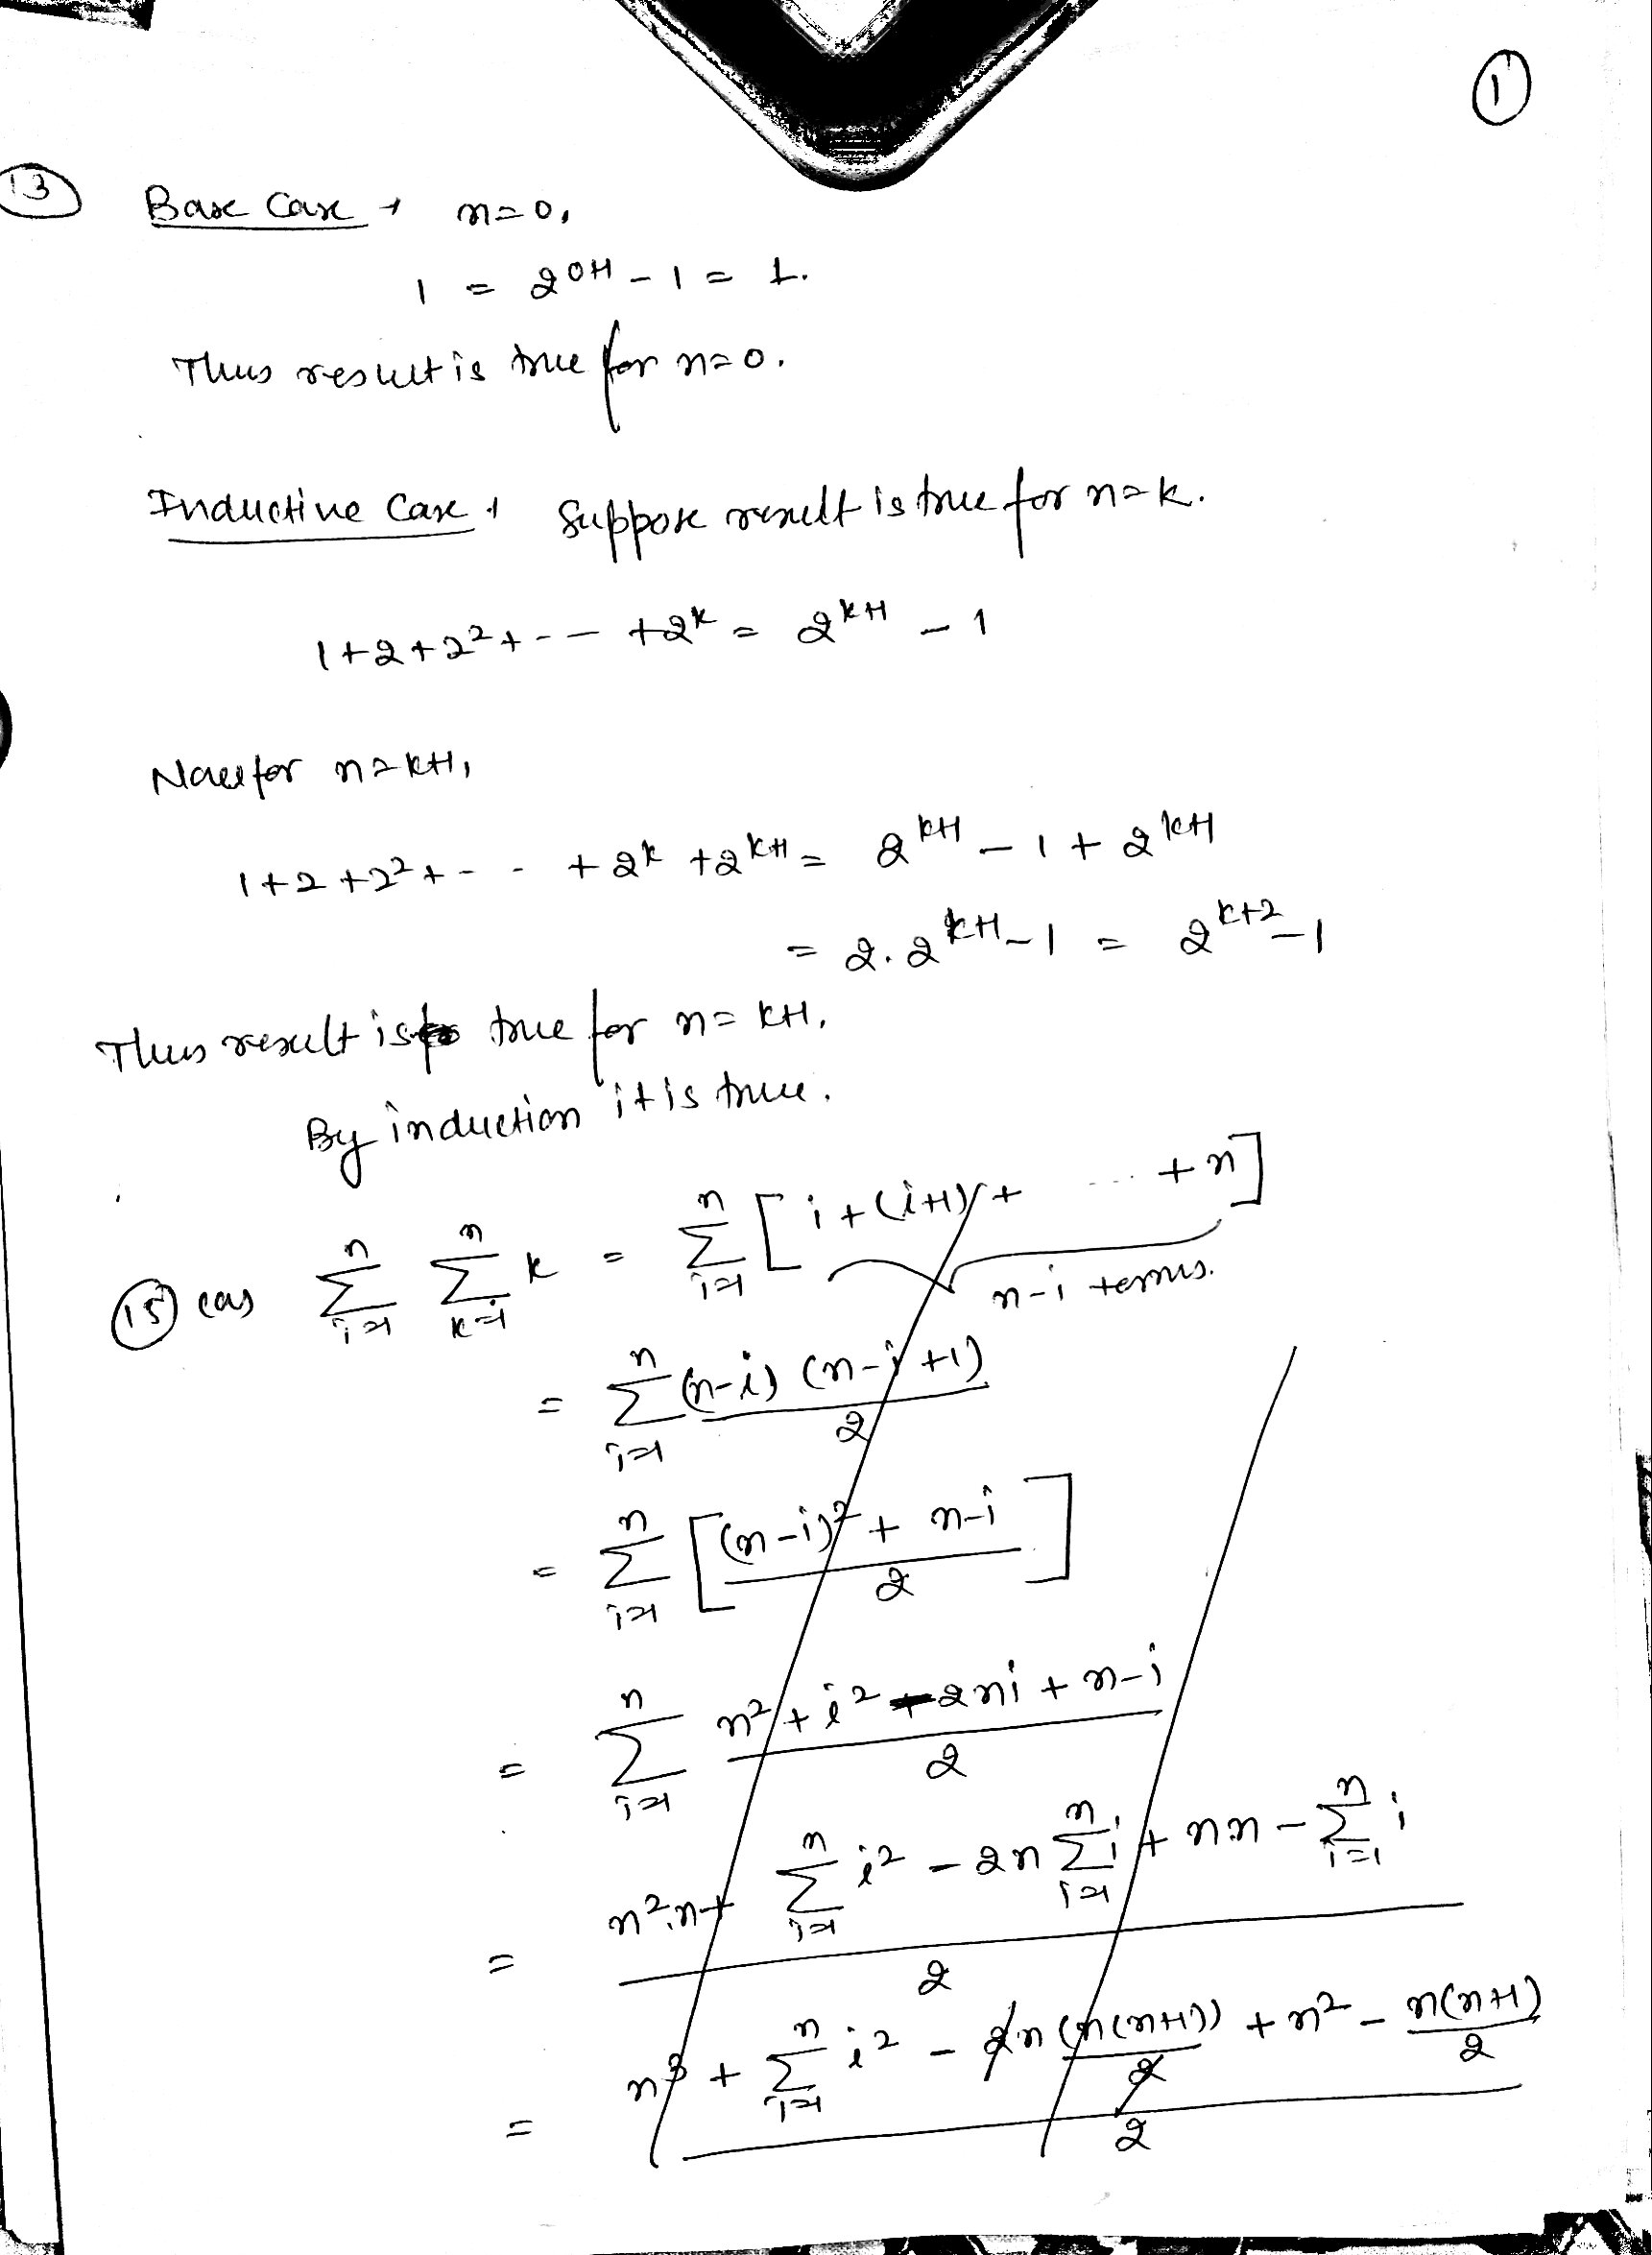 ①
⑬ Base Case → n=0,
1 = 2^{0+1} - 1 = 1.
Thus result is true for n=0.
Inductive Case → Suppose result is true for n=k.
1+2+2^2+-- +2^k = 2^{k+1} - 1
Now for n=k+1,
1+2+2^2+- - +2^k +2^{k+1} = 2^{k+1} - 1 + 2^{k+1}
= 2.2^{k+1} - 1 = 2^{k+2} - 1
Thus result is true for n=k+1.
By induction it is true.
⑮ (a) \sum_{i=1}^{n} \sum_{k=i}^{n} k = \sum_{i=1}^{n} [i+(i+1)+ .... +n]
n-i terms.
= \sum_{i=1}^{n} \frac{(n-i)(n-i+1)}{2}
= \sum_{i=1}^{n} [\frac{(n-i)^2 + n-i}{2}]
= \sum_{i=1}^{n} \frac{n^2+i^2-2ni+n-i}{2}
= \frac{n^2.n+ \sum_{i=1}^{n} i^2 - 2n \sum_{i=1}^{n} i + n.n - \sum_{i=1}^{n} i}{2}
= \frac{n^3 + \sum_{i=1}^{n} i^2 - 2n \frac{(n(n+1))}{2} + n^2 - \frac{n(n+1)}{2}}{2}